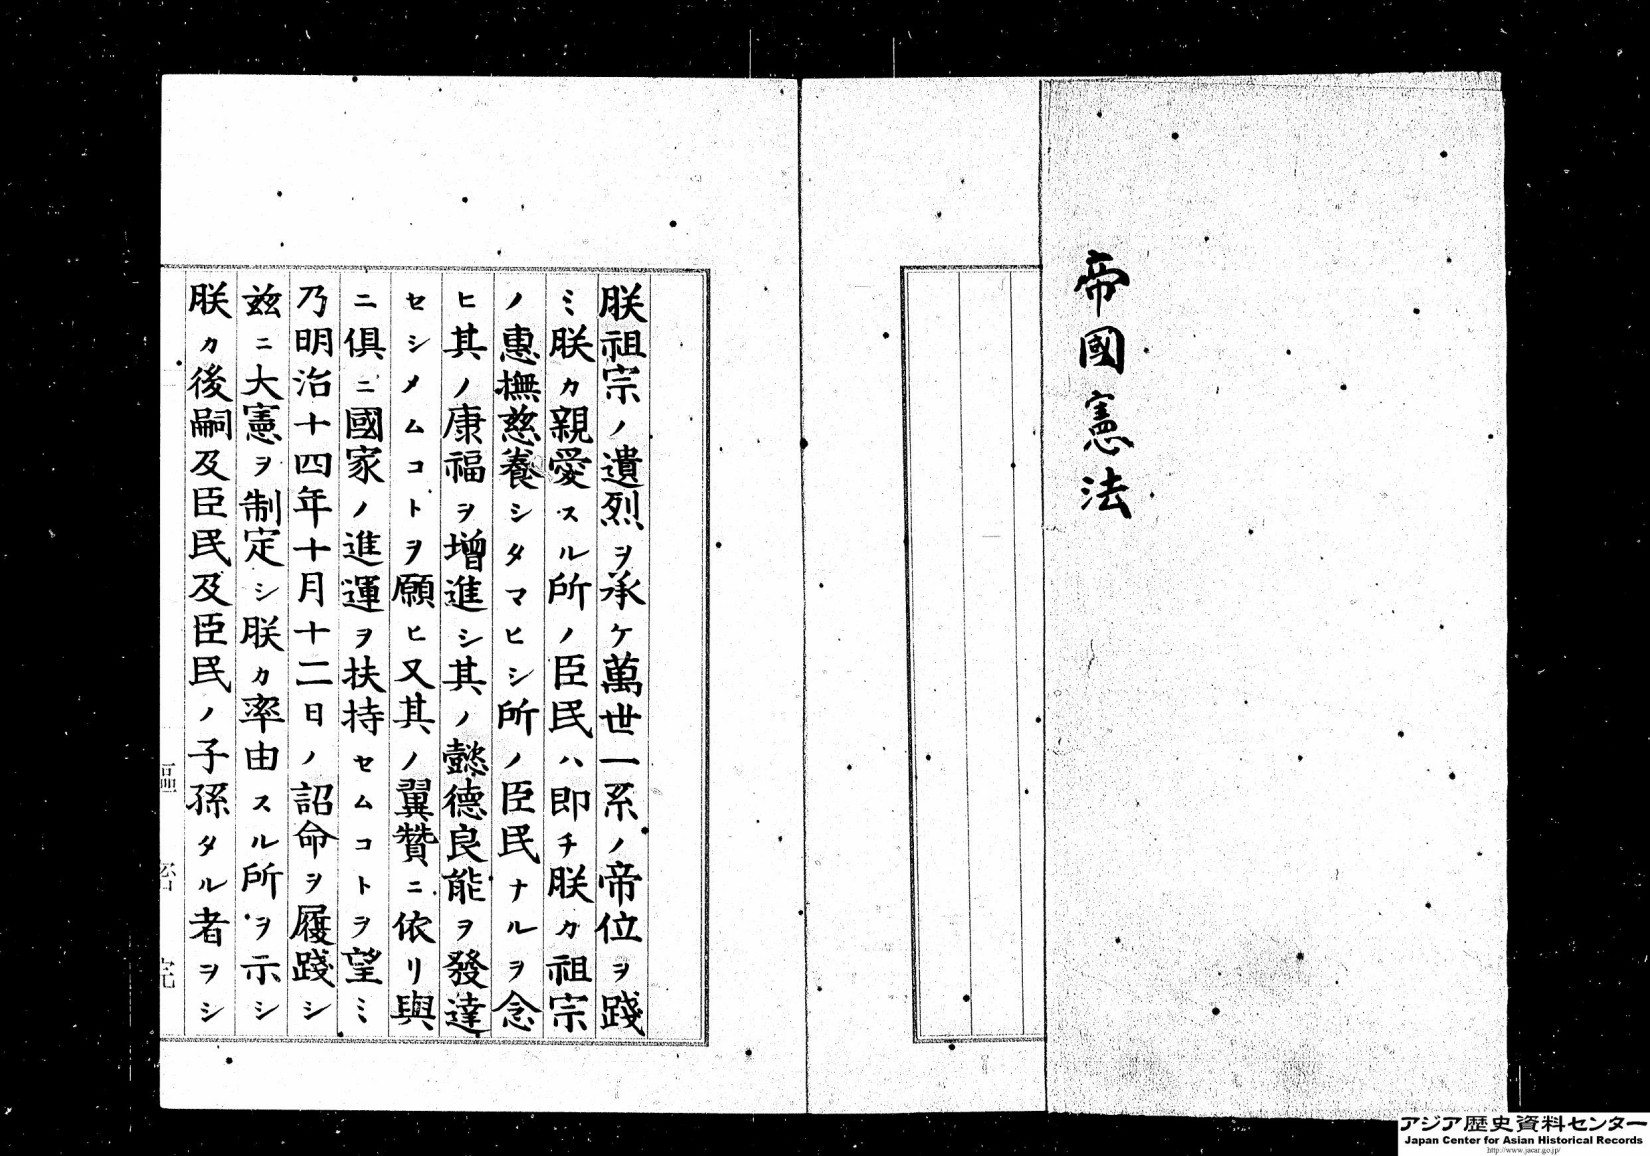 帝國憲法
朕祖宗ノ遺烈ヲ承ケ萬世一系ノ帝位ヲ踐
ミ朕カ親愛スル所ノ臣民ハ即チ朕カ祖宗
ノ惠撫慈養シタマヒシ所ノ臣民ナルヲ念
ヒ其ノ康福ヲ增進シ其ノ懿德良能ヲ發達
セシメムコトヲ願ヒ又其ノ翼贊ニ依リ與
ニ俱ニ國家ノ進運ヲ扶持セムコトヲ望ミ
乃明治十四年十月十二日ノ詔命ヲ履踐シ
玆ニ大憲ヲ制定シ朕カ率由スル所ヲ示シ
朕カ後嗣及臣民及臣民ノ子孫タル者ヲシ
アジア歴史資料センター
Japan Center for Asian Historical Records
http://www.jacar.go.jp/